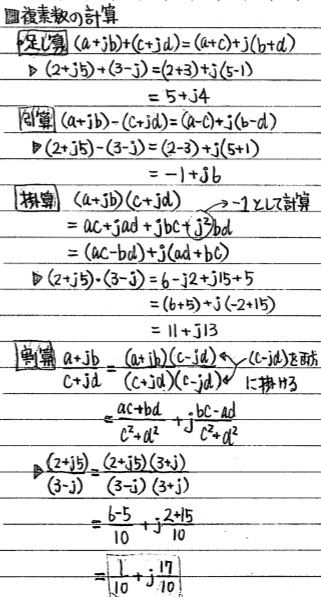 回複素数の計算
足し算 (a+jb)+(c+jd)=(a+c)+j(b+d)
▷ (2+j5)+(3-j)=(2+3)+j(5-1)
= 5+j4
引算 (a+jb)-(c+jd)=(a-c)+j(b-d)
▷(2+j5)-(3-j)=(2-3)+j(5+1)
= -1+j6
掛算 (a+jb)(c+jd) → -1として計算
= ac+jad+jbc+j²bd
= (ac-bd)+j(ad+bc)
▷(2+j5)・(3-j)=6-j2+j15+5
=(6+5)+j(-2+15)
= 11+j13
割算 (a+jb)/(c+jd) = (a+jb)(c-jd)/(c+jd)(c-jd) ← (c-jd)を両方に掛ける
= (ac+bd)/(c²+d²) + j(bc-ad)/(c²+d²)
▷(2+j5)/(3-j) = (2+j5)(3+j)/(3-j)(3+j)
= (6-5)/10 + j(2+15)/10
= 1/10 + j17/10